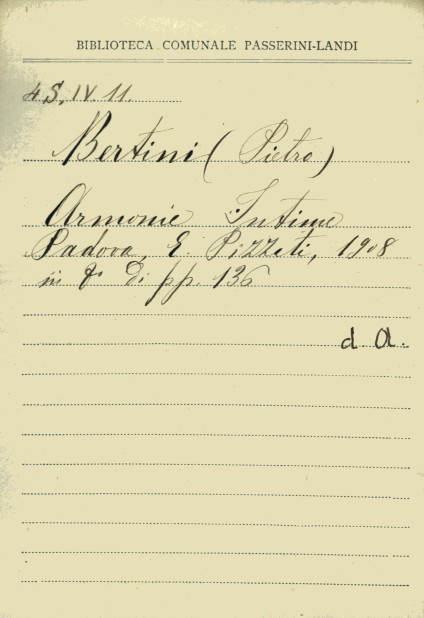 BIBLIOTECA COMUNALE PASSERINI-LANDI
4S, IV. 11.
Bertini (Pietro)
Armonie Intime
Padova, E. Pizzati, 1908
in 8° di pp. 136
d. A.